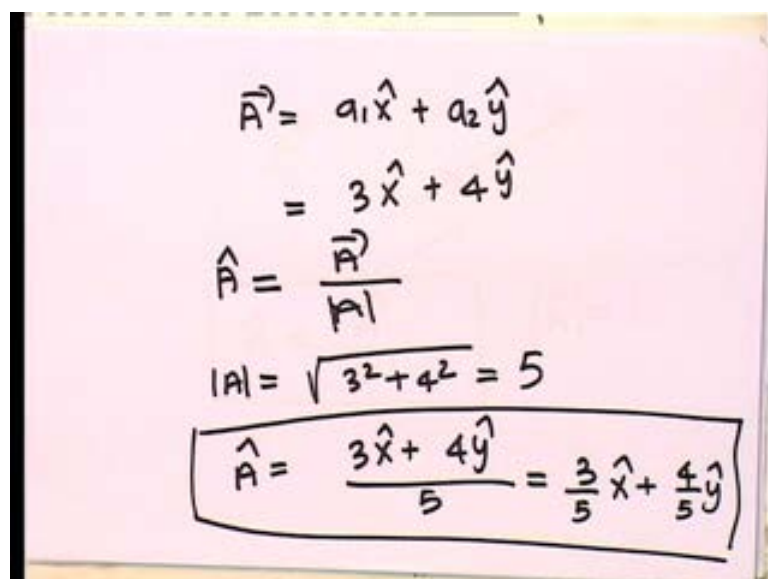 A⃗ = a₁x̂ + a₂ŷ
= 3x̂ + 4ŷ
Â = A⃗ / |A|
|A| = √(3² + 4²) = 5
Â = (3x̂ + 4ŷ) / 5 = 3/5 x̂ + 4/5 ŷ